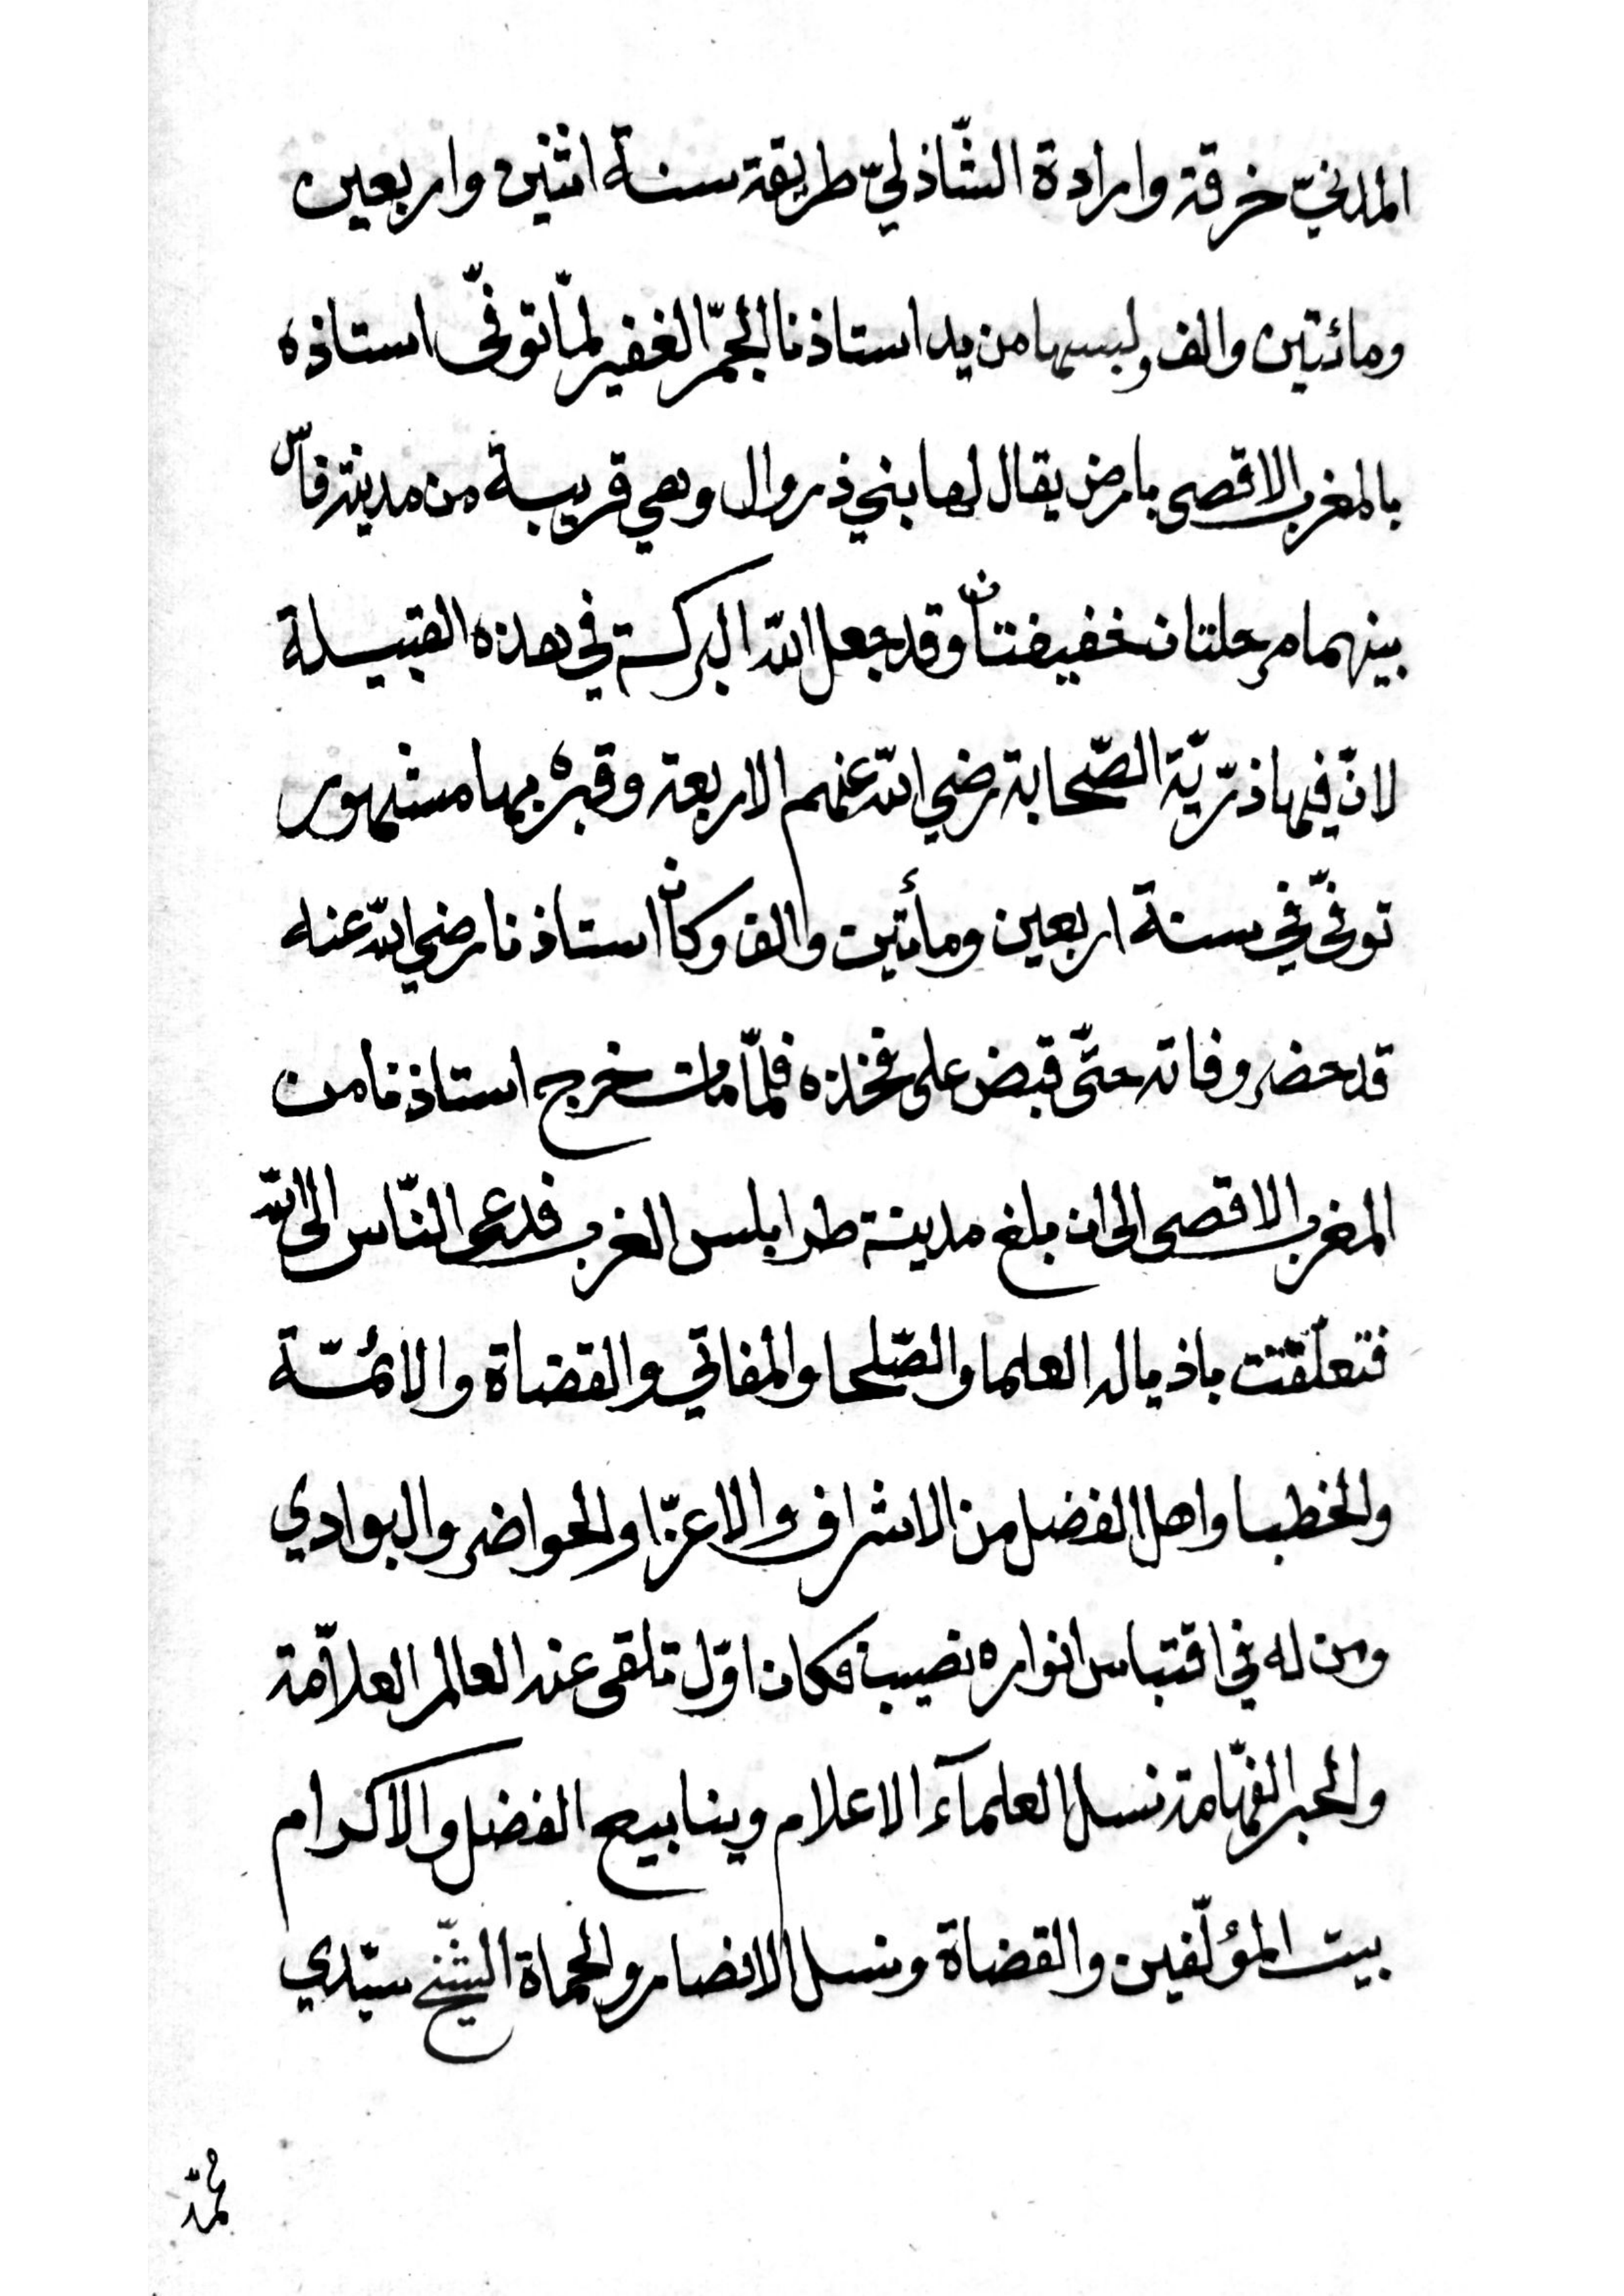 المدنيّ خرقة وارادة الشّاذليّ طريقة سنة اثنين واربعين
ومائتين والف ولبسها من يد استاذنا الجمّ الغفير لمّا توفّى استاذه
بالمغرب الاقصى بارض يقال لها بني ذروال وهي قريبة من مدينة فاس
بينهما مرحلتان خفيفتان وقد جعل الله البركة في هذه القبيلة
لانّ فيها ذرّيّة الصّحابة رضي الله عنهم الاربعة وقبره بها مشهور
توفّى في سنة اربعين ومأتين والف وكان استاذنا رضي الله عنه
قد حضر وفاته حتّى قبض على فخذه فلمّا مات خرج استاذنا من
المغرب الاقصى الى ان بلغ مدينة طرابلس الغرب فدعى النّاس الى الله
فتعلّقت باذياله العلما والصّلحا والمفاتي والقضاة والائمّة
والخطبا واهل الفضل من الاشراف والاعزّا والحواضر والبوادي
ومن له في اقتباس انواره نصيب فكان اوّل تلقى عند العالم العلاّمة
والحبر الفهّامة نسل العلمآء الاعلام وينابيع الفضل والاكرام
بيت المؤلّفين والقضاة ونسل الانصار والحماة الشّيخ سيّدي
محمّد